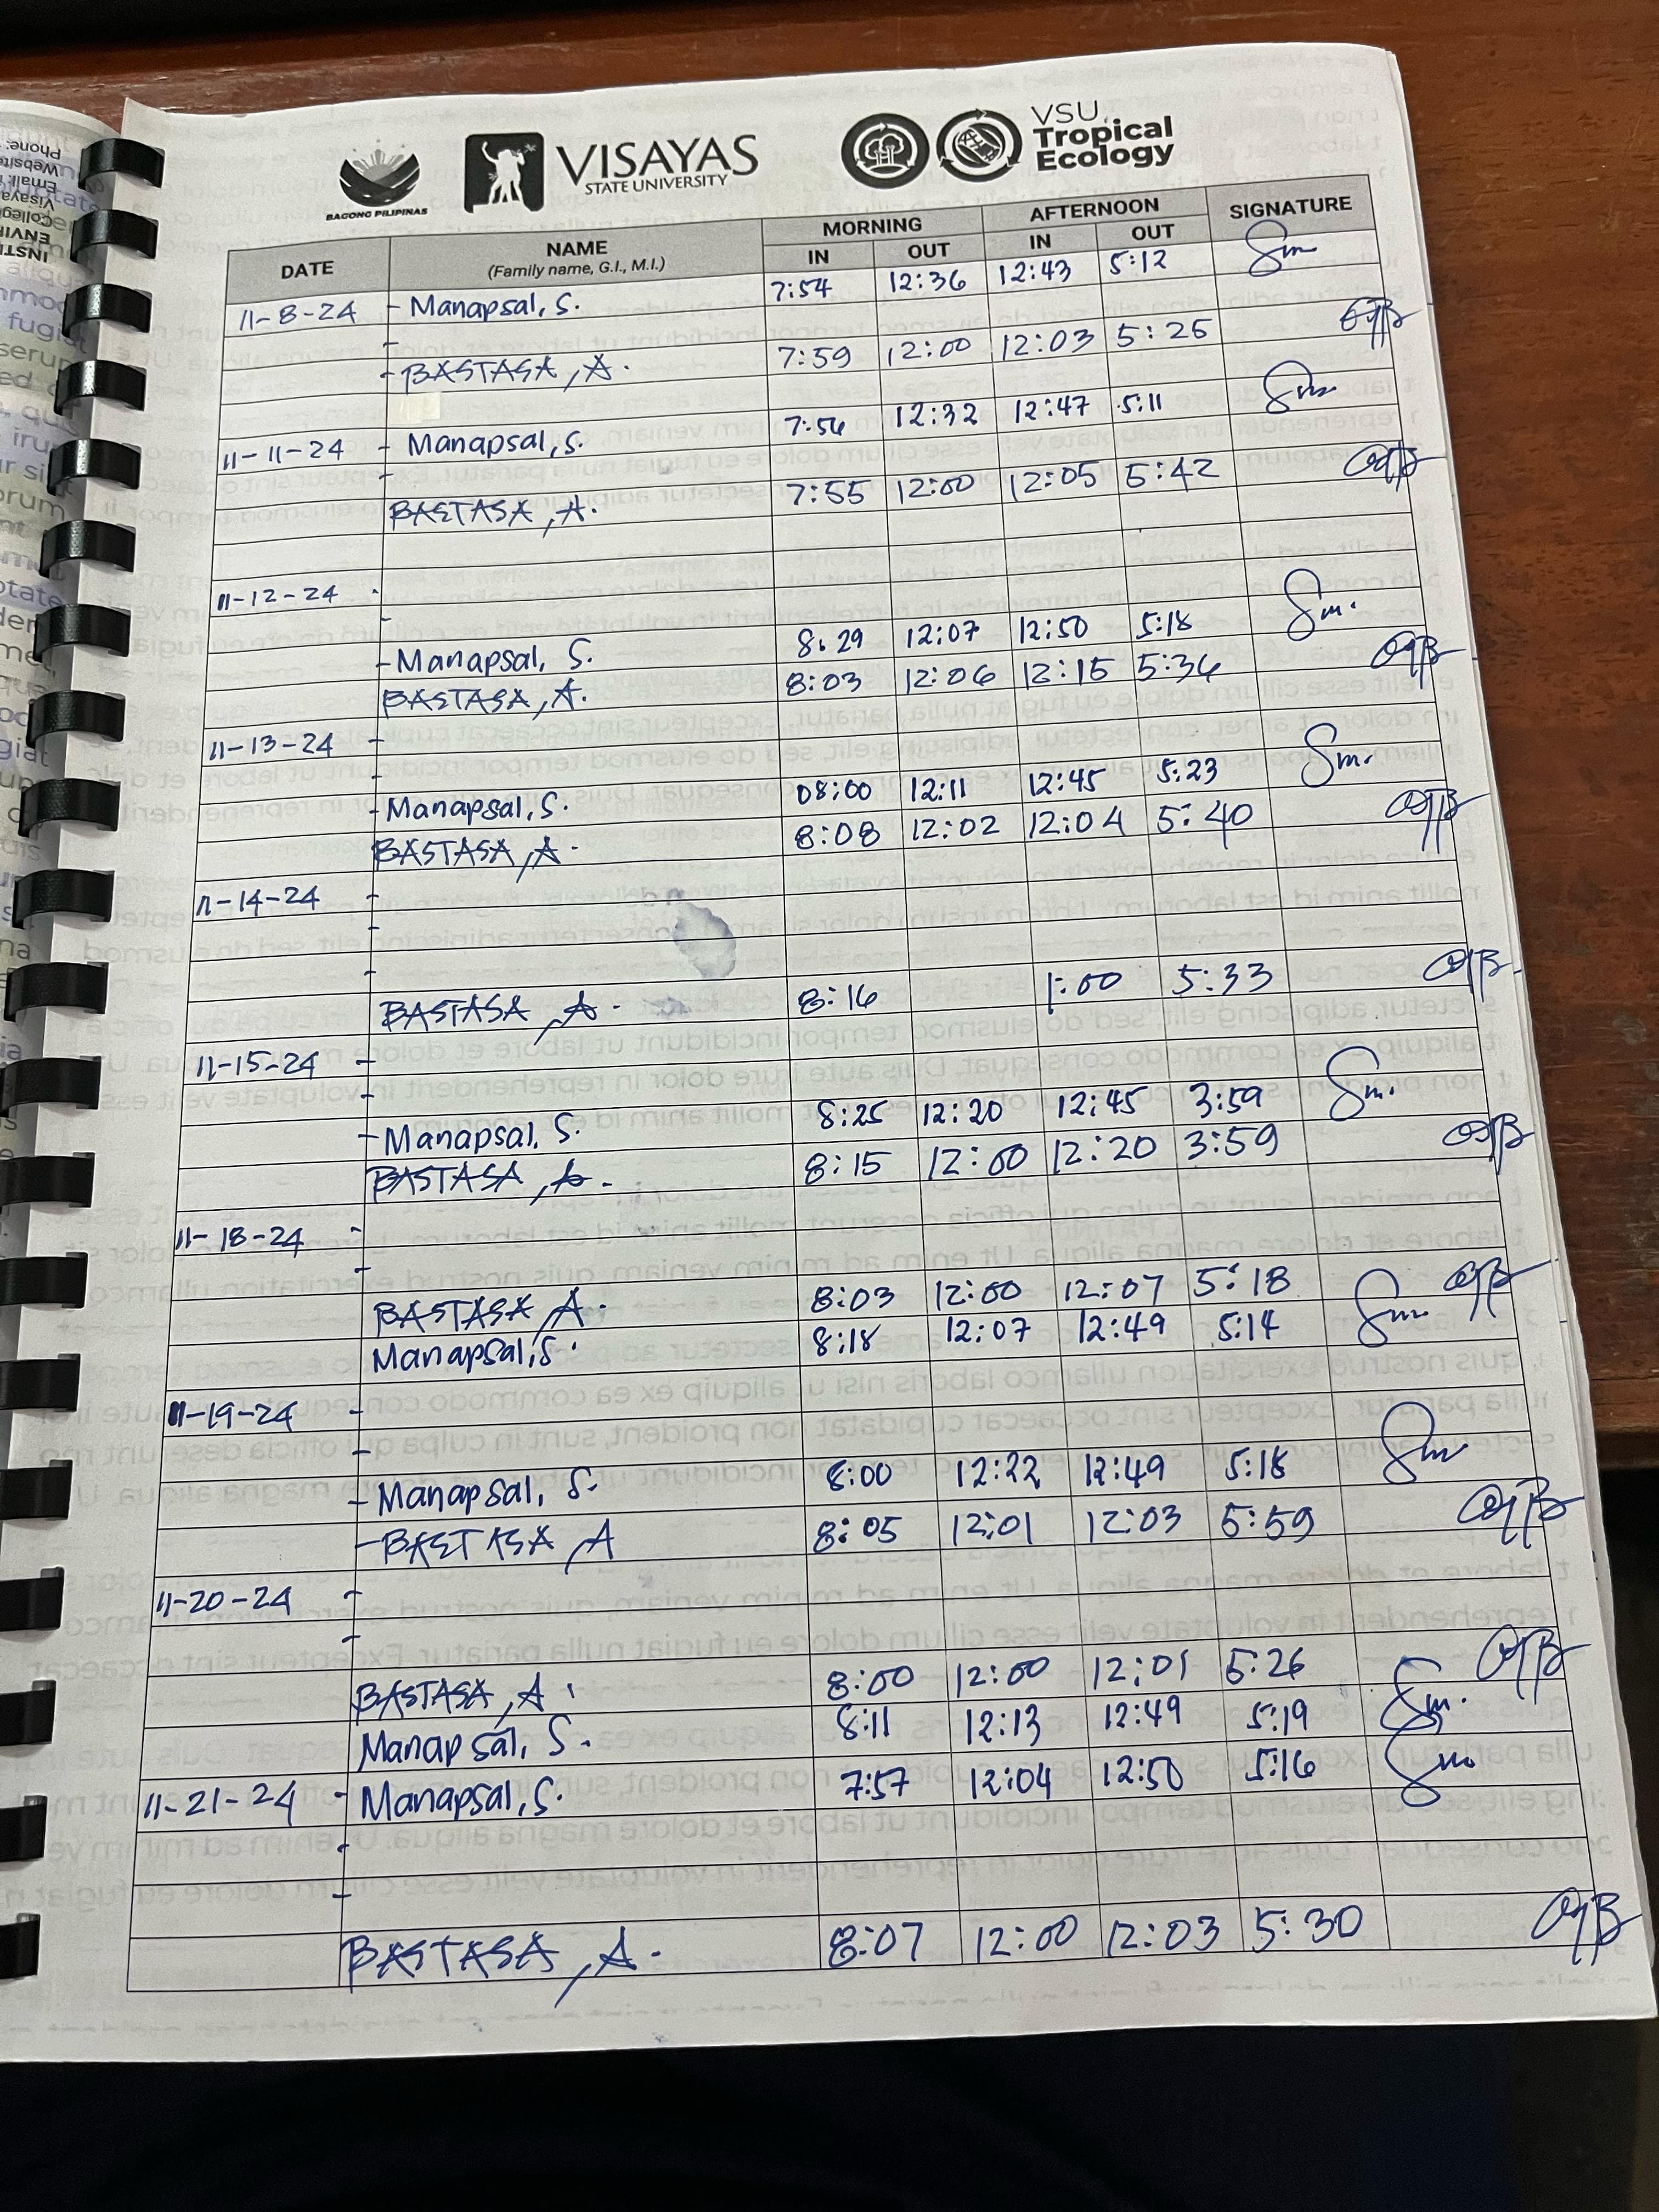 BAGONG PILIPINAS
VISAYAS
STATE UNIVERSITY
VSU
Tropical
Ecology
DATE NAME MORNING AFTERNOON SIGNATURE
(Family name, G.I., M.I.) IN OUT IN OUT
11-8-24 - Manapsal, S. 7:54 12:36 12:43 5:12 Sm
-
- BASTASA, A. 7:59 12:00 12:03 5:25
11-11-24 - Manapsal, S. 7:56 12:32 12:47 5:11 Sm
-
BASTASA, A. 7:55 12:00 12:05 5:42
11-12-24 -
-
- Manapsal, S. 8:29 12:07 12:50 5:18 Sm.
BASTASA, A. 8:03 12:06 12:15 5:36
11-13-24 -
-
- Manapsal, S. 08:00 12:11 12:45 5:23 Sm.
BASTASA, A. 8:08 12:02 12:04 5:40
11-14-24 -
-
-
BASTASA, A. 8:16 1:00 5:33
11-15-24 -
-
- Manapsal, S. 8:25 12:20 12:45 3:59 Sm.
BASTASA, A. 8:15 12:00 12:20 3:59
11-18-24 -
-
BASTASA, A. 8:03 12:00 12:07 5:18
Manapsal, S. 8:18 12:07 12:49 5:14 Sm
11-19-24 -
-
- Manapsal, S. 8:00 12:22 12:49 5:18 Sm
- BASTASA, A 8:05 12:01 12:03 5:59
11-20-24 -
-
BASTASA, A. 8:00 12:00 12:01 5:26
Manapsal, S. 8:11 12:13 12:49 5:19 Sm.
11-21-24 - Manapsal, S. 7:57 12:04 12:50 5:16 Sm
-
-
BASTASA, A. 8:07 12:00 12:03 5:30